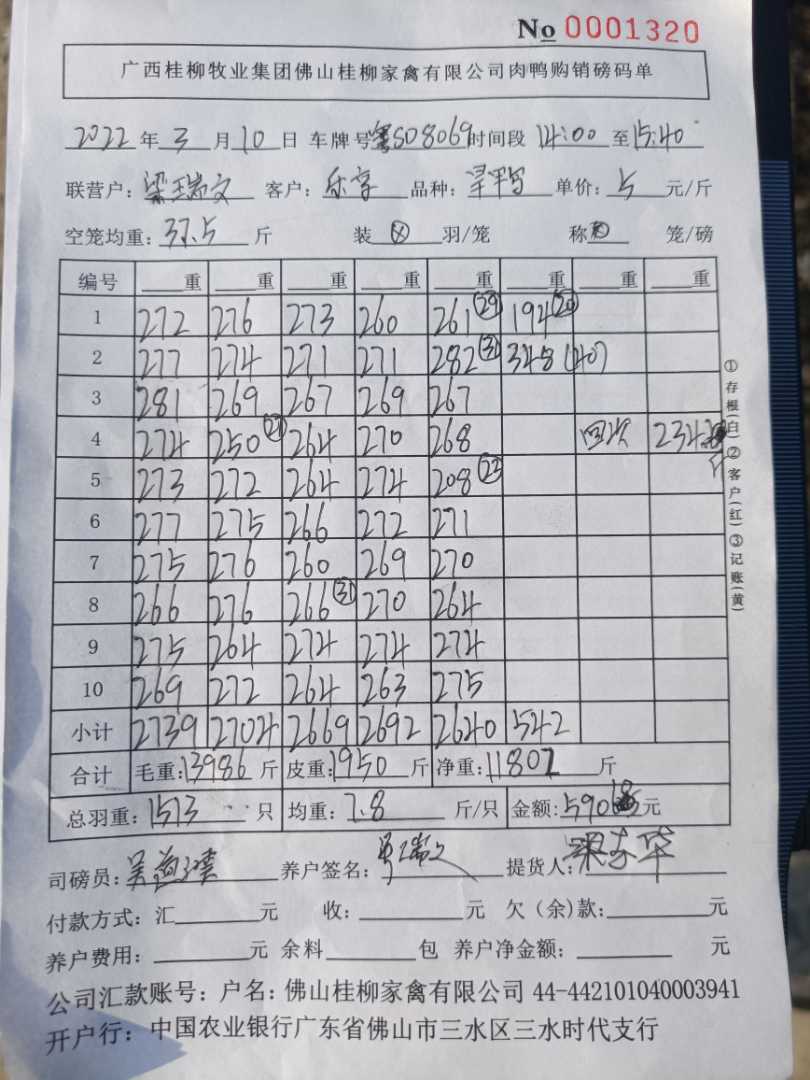 No 0001320
广西桂柳牧业集团佛山桂柳家禽有限公司肉鸭购销磅码单
2022年3月10日 车牌号粤S08069时间段14:00至15:40
联营户:梁瑞文 客户:乐享 品种: 单价:5元/斤
空笼均重:37.5斤 装 羽/笼 称 笼/磅
编号 重 重 重 重 重 重 重 重
1 272 276 273 260 261(29) 194(20)
2 277 274 271 271 282(31) 348(40)
3 281 269 267 269 267
4 274 250(27) 264 270 268 回次 234
5 273 272 264 274 208(22) 斤
6 277 275 266 272 271
7 275 276 260 269 270
8 266 276 266(31) 270 264
9 275 264 274 274 274
10 269 272 264 263 275
小计 2739 2704 2669 2692 2640 542
合计 毛重:13986斤 皮重:1950斤 净重:11802斤
总羽重:1513只 均重:7.8斤/只 金额:590元
司磅员:吴 养户签名: 提货人:梁东华
付款方式:汇 元 收: 元 欠(余)款: 元
养户费用: 元 余料 包 养户净金额: 元
公司汇款账号:户名:佛山桂柳家禽有限公司 44-442101040003941
开户行:中国农业银行广东省佛山市三水区三水时代支行
①存根(白)②客户(红)③记账(黄)